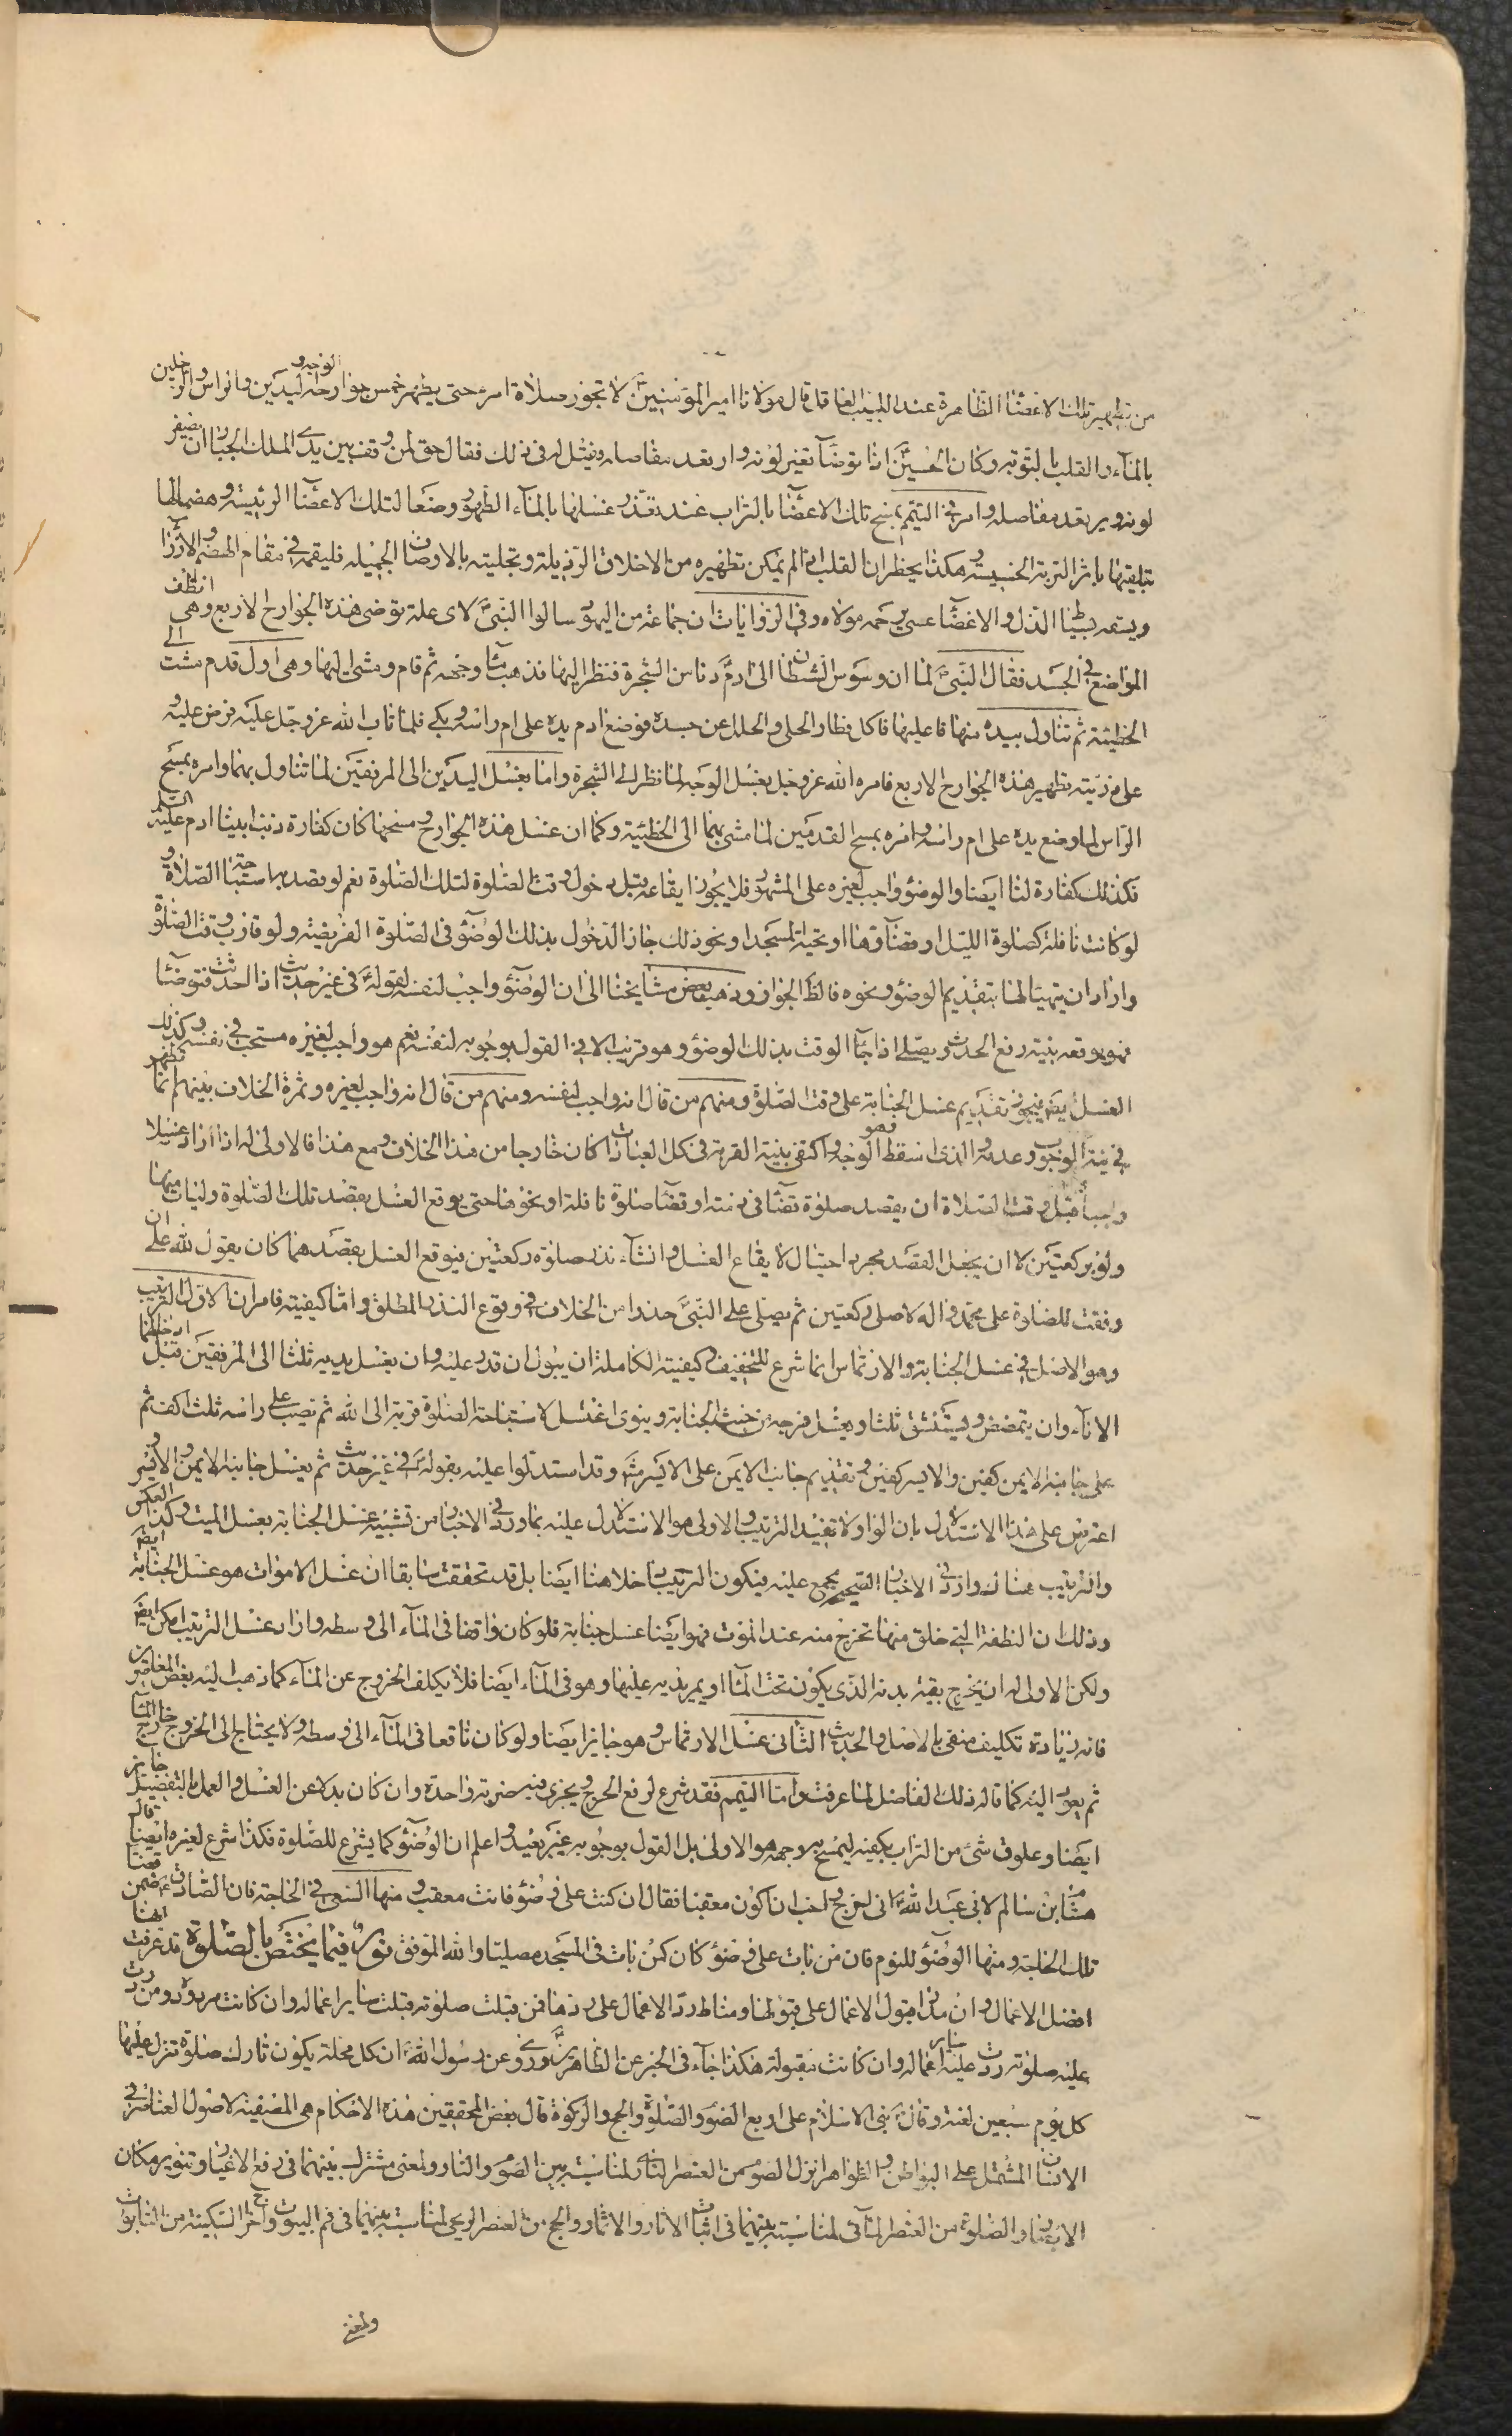 من تطهير تلك الاعضاء الظاهرة عند اللبيب العاقل قال مولانا امير المؤمنين ع لا تجوز صلاة امرء حتى يطهر خمس جوارحه الوجه و اليدين والراس والرجلين
بالمآء والقلب بالتوبة وكان الحسين ع اذا توضأ تغير لونه وارتعد مفاصله فقيل له في ذلك فقال حق لمن وقف بين يدي الملك الجبار ان يصفر
لونه ويرتعد مفاصله وامر في التيمم بمسح تلك الاعضاء بالتراب عند تعذر غسلها بالمآء الطهور وضعا لتلك الاعضاء الرئيسة وهضما لها
بتلقيها باثر التربة الخسيسة وهكذا يخطر ان القلب اذا لم يمكن تطهيره من الاخلاق الرذيلة وتحليته بالاوصاف الجميلة فليقمه في مقام الهضم والازراء
ويسقه بسياط الذل والاغضاء عسى يرحمه مولاه وفي الروايات ان جماعة من اليهود سالوا النبي ص لاى علة توضى هذه الجوارح الاربع وهى انظف
المواضع في الجسد فقال النبي ص لما ان وسوس الشيطان الى ادم ع دنا من الشجرة فنظر اليها فذهب ماء وجهه ثم قام ومشى اليها وهى اول قدم مشت الى
الخطيئة ثم تناول بيده منها ما عليها فاكل فطار الحلى والحلل عن جسده فوضع ادم يده على ام راسه وبكى فلما تاب الله عز وجل عليه فرض عليه و
على ذريته تطهير هذه الجوارح الاربع فامره الله عز وجل بغسل الوجه لما نظر الى الشجرة وامر بغسل اليدين الى المرفقين لما تناول بهما وامره بمسح
الراس لما وضع يده على ام راسه وامره بمسح القدمين لما مشى بهما الى الخطيئة وكما ان غسل هذه الجوارح ومسحها كان كفارة ذنب ابينا ادم عليه السلام
فكذلك كفارة لنا ايضا والوضوء واجب لغيره على المشهور فلا يجوز ايقاعه قبل دخول وقت الصلوة لتلك الصلوة نعم لو قصد بها استباحة الصلاة و
لو كانت نافلة كصلوة الليل او قضآء وها او تحية المسجد او نحو ذلك جاز الدخول بذلك الوضوء في الصلوة الفريضة ولو قارب وقت الصلوة
واراد ان يتهيا لها بتقديم الوضوء ونحوه فالظ الجواز وذهب بعض مشايخنا الى ان الوضوء واجب لنفسه لقوله ع في غير حديث اذا احدثت فتوضا
فهو يوقعه بنية رفع الحدث ويصلى اذا جآء الوقت بذلك الوضوء وهو قريب الا في القول بوجوبه لنفسه نعم هو واجب لغيره مستحب في نفسه وكذلك
الغسل ايضا فيجوز تقديم غسل الجنابة على وقت الصلوة ومنهم من قال انه واجب لنفسه ومنهم من قال انه واجب لغيره وثمرة الخلاف بينهم انما تظهر
في نية الوجوب وعدمه والذى اسقط الوجه واكتفى بنية القربة في كل العبادات كان خارجا من هذا الخلاف ومع هذا فالاولى له اذا اراد غسلا
واجبا قبل وقت الصلاة ان يقصد صلوة قضآء في ذمته او قضآء صلوة نافلة او نحوها حتى يوقع الغسل بقصد تلك الصلوة وليات بها
ولو بركعتين لا ان يجعل القصد مجرد احتيال لايقاع الغسل وانشآء نذر صلوة ركعتين فيوقع الغسل بقصدهما كان يقول لله على ان
وفقت للصلوة على محمد واله لاصلى ركعتين ثم يصلى على النبي ص حذرا من الخلاف في وقوع النذر المطلق واما كيفيته فامران الاول الترتيب
وهو الاصل في غسل الجنابة والارتماس انما شرع للتخفيف وكيفيته الكاملة ان يبول ان قدر عليه وان يغسل يديه ثلثا الى المرفقين قبل ادخالهما
الانآء وان يتمضض ويستنشق ثلثا ويغسل فرجه من خبث الجنابة وينوى اغتسل لاستباحة الصلوة قربة الى الله ثم يصب على راسه ثلث اكف ثم
على جانبه الايمن كفين والايسر كفين وتقديم جانب الايمن على الايسر وقد استدلوا عليه بقوله ع في غير حديث ثم يغسل جانبه الايمن والايسر و
اعترض على هذا الاستدلال بان الواو لا تفيد الترتيب والاولى هو الاستدلال عليه بما ورد في الاخبار من تشبيه غسل الجنابة بغسل الميت وكذا العكس
والترتيب هناك وارد في الاخبار الصحيحة مجمع عليه فيكون الترتيب داخلا هنا ايضا بل قد تحققت سابقا ان غسل الاموات هو غسل الجنابة ايضا
وذلك ان النطفة التي خلق منها تخرج منه عند الموت فهو ايضا غسل جنابة فلو كان واقفا في المآء الى وسطه واراد غسل الترتيب امكن ايضا
ولكن الاولى له ان يخرج بقية بدنه الذي يكون تحت المآء او يمر يديه عليها وهو في المآء ايضا فلا يكلف الخروج عن المآء كما ذهب اليه بعض المعاصرين
فانه زيادة تكليف منفي بالاصل والحديث الثاني غسل الارتماس وهو جايز ايضا ولو كان واقعا في المآء الى وسطه ولا يحتاج الى الخروج خارج المآء
ثم يعود اليه كما قاله ذلك الفاضل لما عرفت واما التيمم فقد شرع لرفع الحرج ويجزى فيه ضربة واحدة وان كان بدلا عن الغسل والعمل بالتفصيل جايز
ايضا وعلوق شئ من التراب بكفيه ليمسح به وجهه هو الاولى بل القول بوجوبه غير بعيد واعلم ان الوضوء كما يشرع للصلوة فكذا شرع لغيره ايضا قال
هشام بن سالم لابى عبد الله ع انى اخرج واحب ان اكون معقبا فقال ان كنت على وضوء فانت معقب ومنها السعى في الحاجة فان الصادق ع ضمن قضا
تلك الحاجة ومنها الوضوء للنوم فان من بات على وضوء كان كمن بات في المسجد مصليا والله الموفق نور فيما يختص بالصلوة قد عرفت انها
افضل الاعمال وان مدار قبول الاعمال على قبولها ومناط رد الاعمال على ردها فمن قبلت صلوته قبلت ساير اعماله وان كانت مردودة ومن ردت
عليه صلوته ردت عليه ساير اعماله وان كانت مقبولة هكذا جآء في الخبر عن الطاهرين ع وروى عن رسول الله ص ان كل محلة يكون تارك صلوة تنزل عليها
كل يوم سبعين لعنة وقال ع بنى الاسلام على اربع الصوم والصلوة والحج والزكوة قال بعض المحققين هذه الاحكام هي المصفية لاصول العناصر في
الانسان المشتمل على البواطن والظواهر نزل الصوم من العنصر النارى لمناسبته بين الصوم والنار ولمعنى مشترك بينهما في رفع الاغيار وتنوير مكان
الابصار والصلوة من العنصر المآئى لمناسبته بينهما في اثبات الاثار والاثمار والحج من العنصر الريحى لمناسبته بينهما في قم البيوت واخراج السكينة من التابوت
ولمعنى